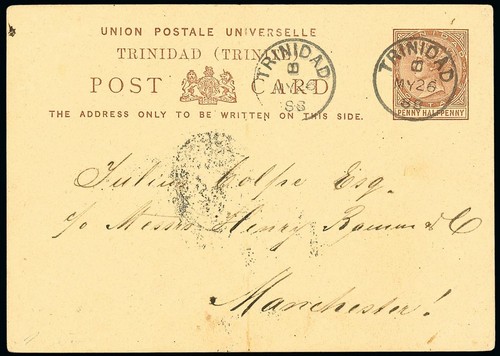 UNION POSTALE UNIVERSELLE
TRINIDAD (TRINI
POST CARD
THE ADDRESS ONLY TO BE WRITTEN ON THIS SIDE.
TRINIDAD
B
MY 26
88
TRINIDAD
B
MY 26
88
PENNY HALFPENNY
Julius Esq.
c/o Messrs Henry & Co
Manchester!